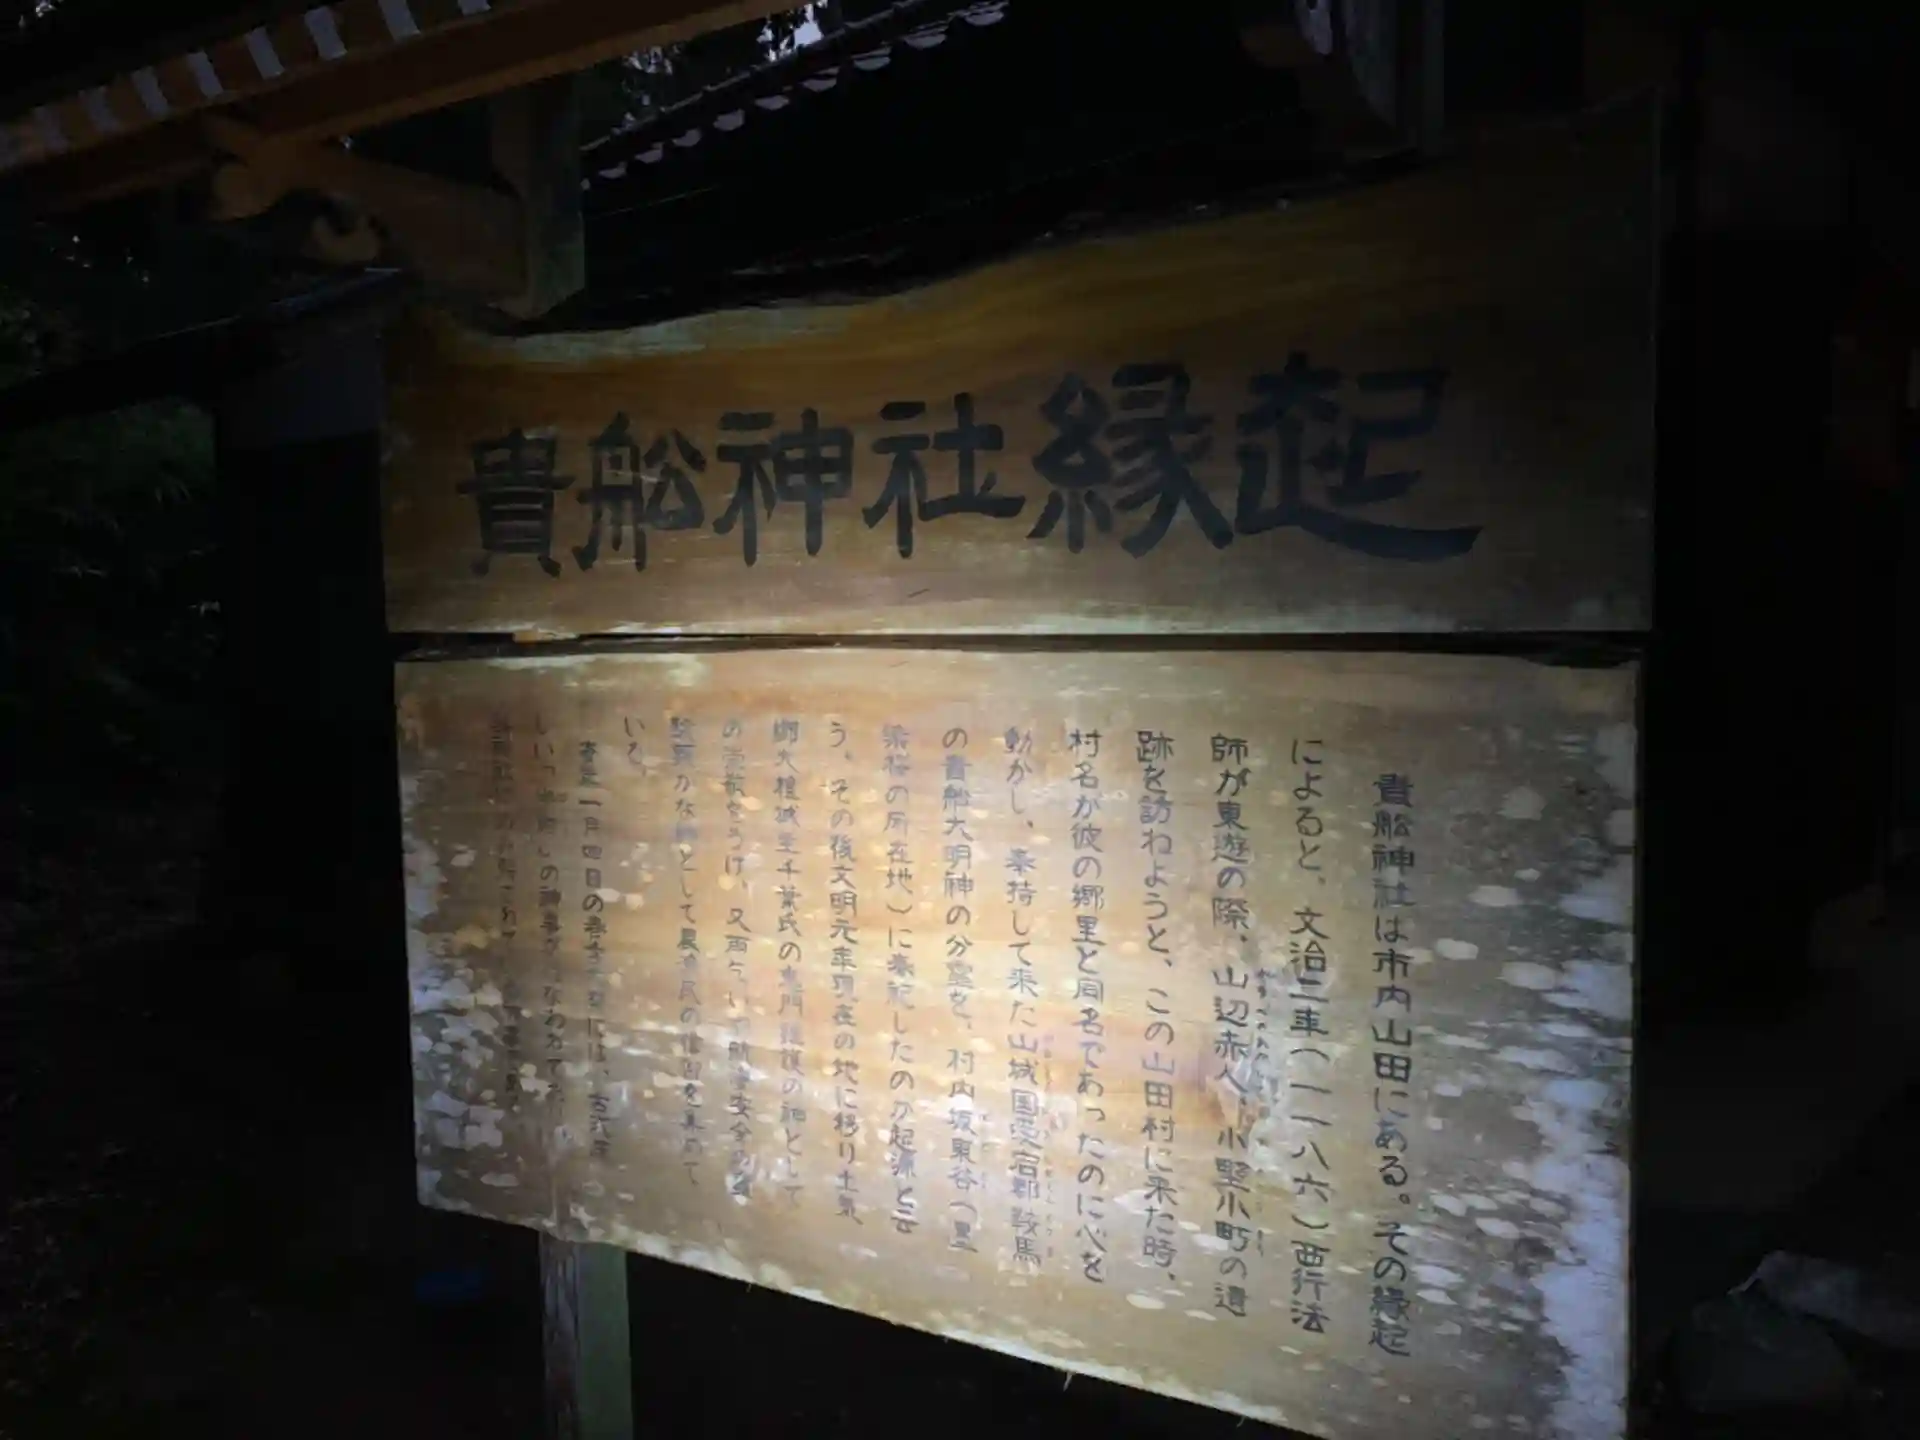 貴船神社縁起
貴船神社は市内山田にある。その縁起
によると、文治二年(一一八六)西行法
師が東遊の際、山辺赤人、小野小町の遺
跡を訪ねようと、この山田村に来た時、
村名が彼の郷里と同名であったのに心を
動かし、奉持して来た山城国愛宕郡鞍馬
の貴船大明神の分霊を、村内坂東谷(墨
染桜の所在地)に奉祀したのが起源と云
う。その後文明元年現在の地に移り土気
御大権城主千葉氏の鬼門鎮護の神として
の崇敬をうけ、又雨乞い
かな神として農漁民の信仰を集めて
いる。
一月四日の春季には、古式
しい の神事が なわれて